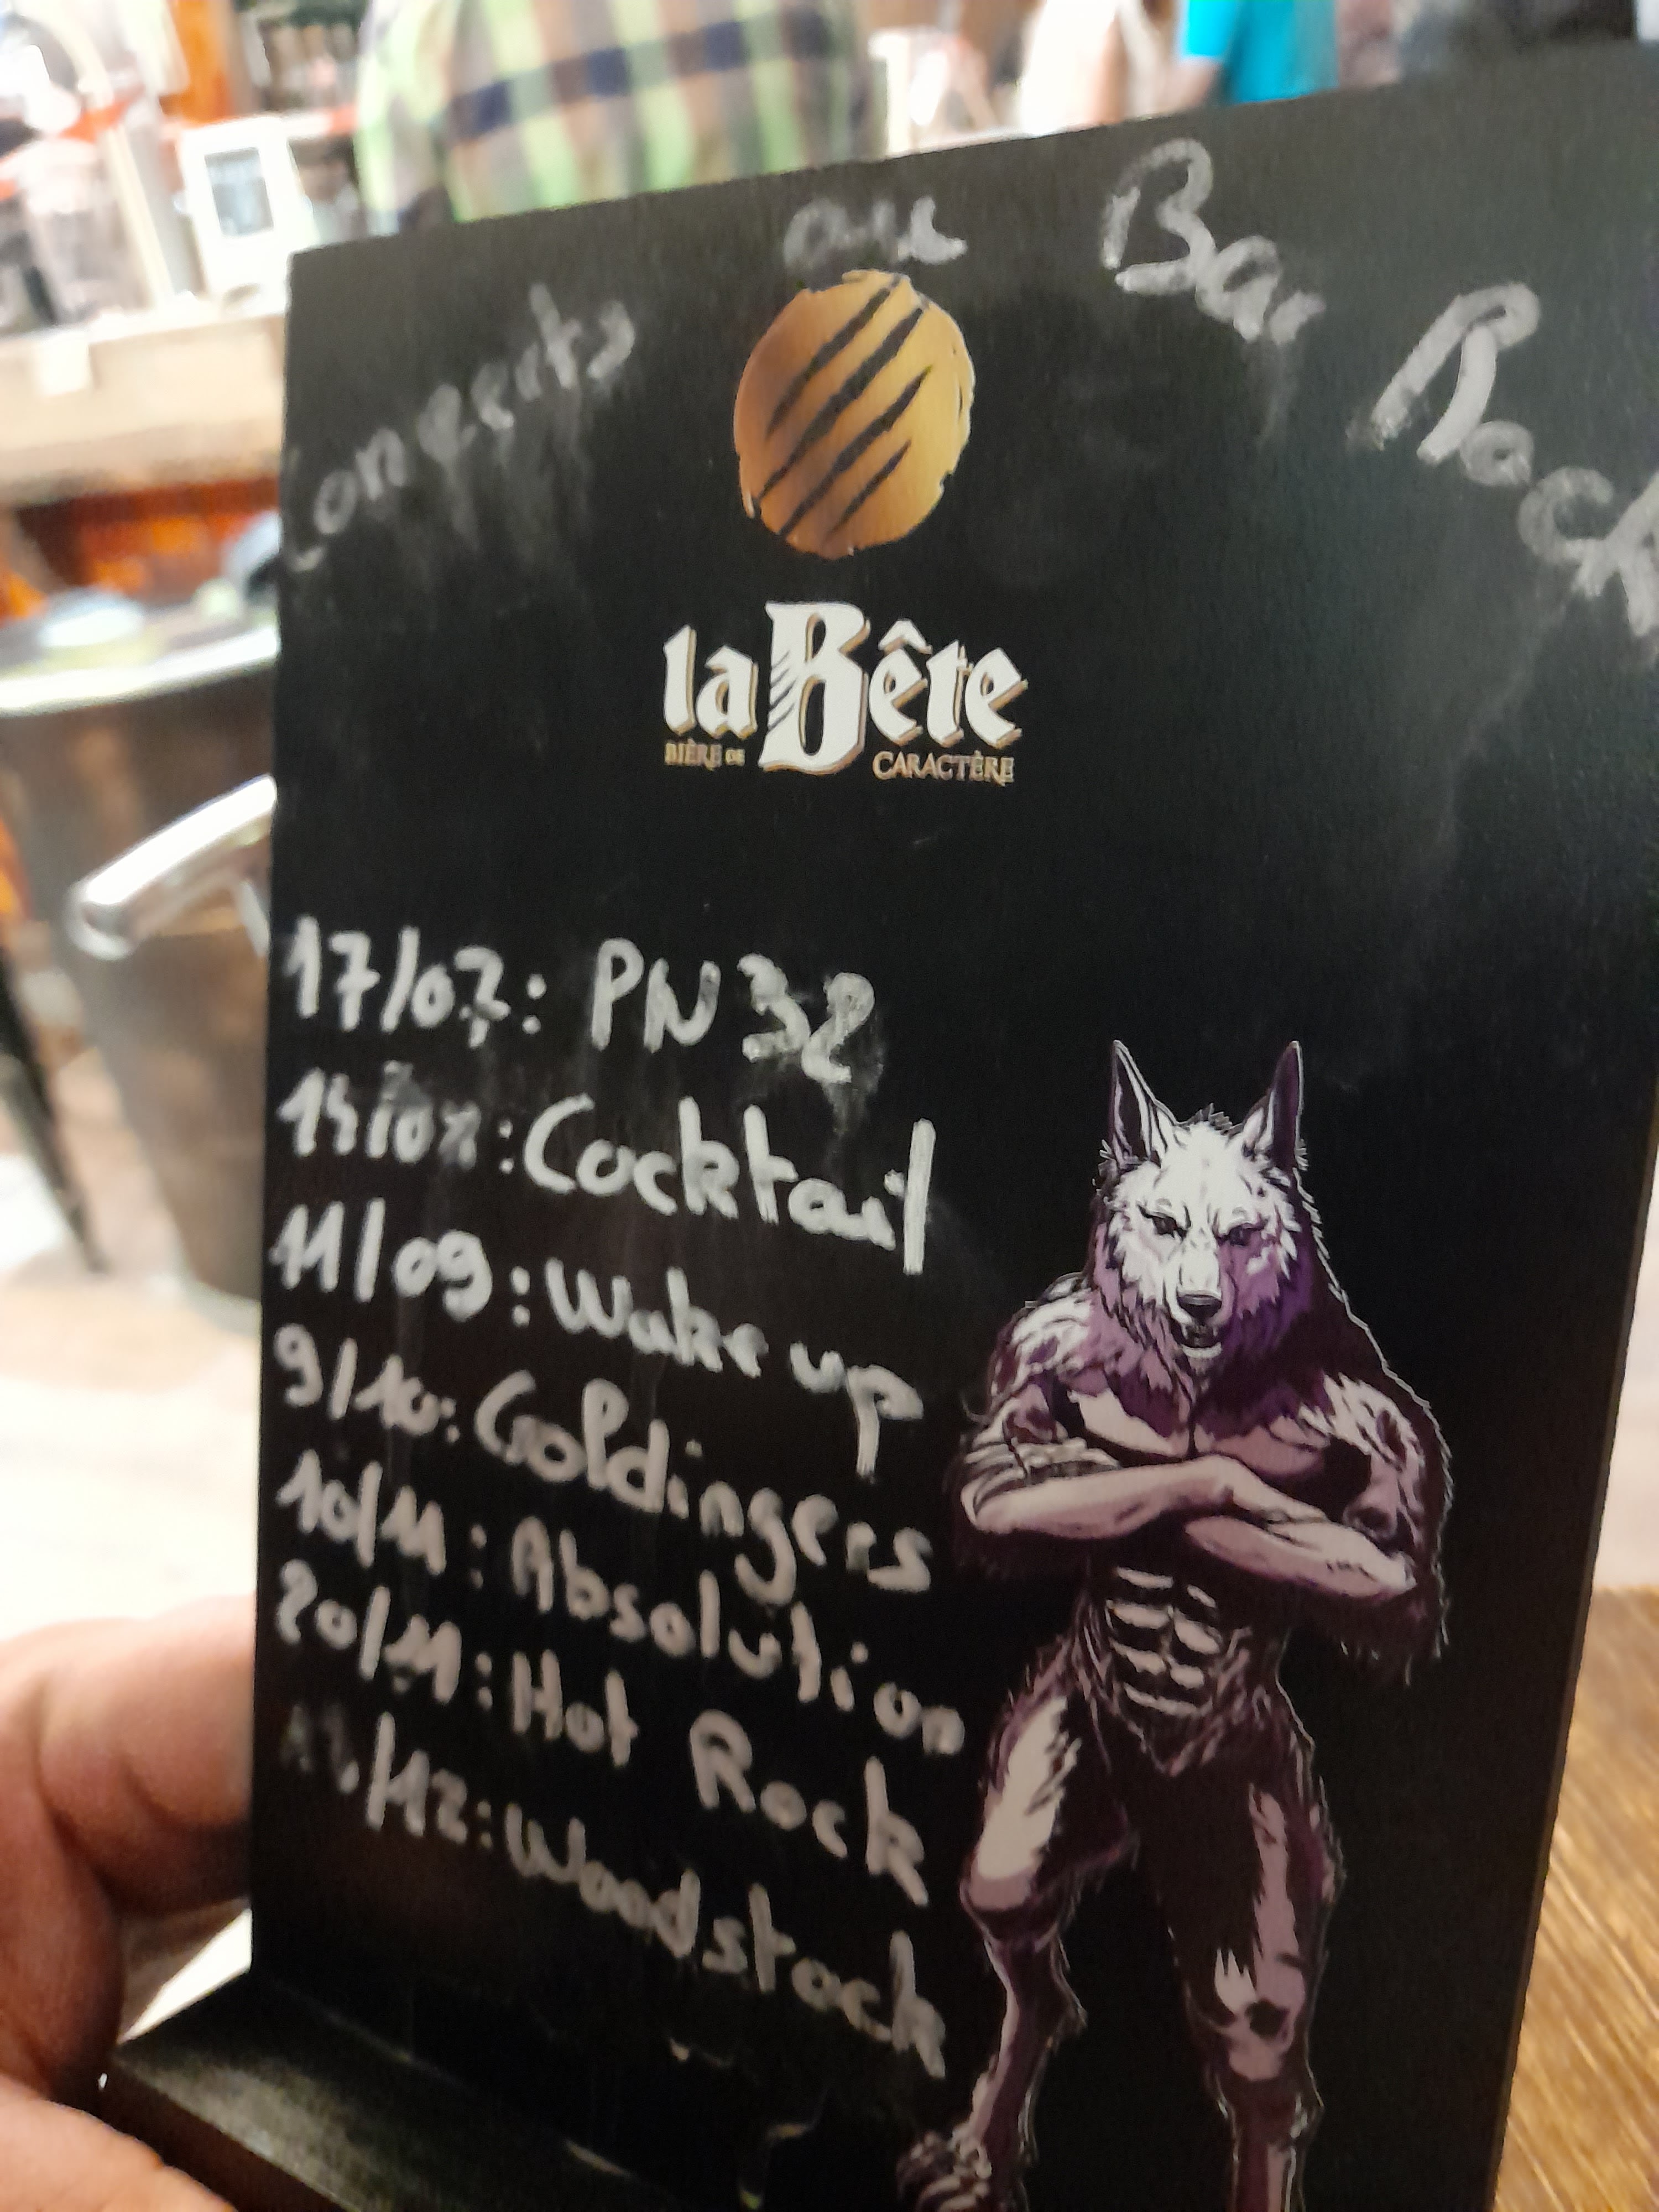 Concerts au Bar Rock
la Bête
BIÈRE DE CARACTÈRE
17/07: PN 32
: Cocktail
11/09: Wake up
9/10: Goldingers
10/11: Absolution
20/11: Hot Rock
/12: Woodstock